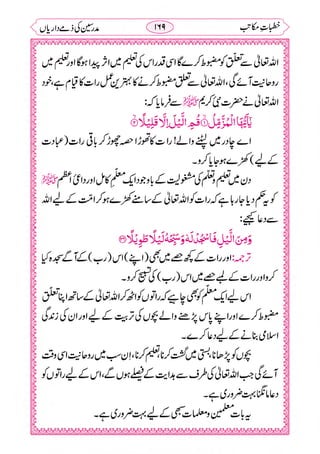 خطباتِ مکاتب ۱۶۹ مدرسین کی ذمے داریاں
اللہ تعالیٰ سے تعلّق کو مضبوط کرے گا اسی قدر اس کی تعلیم میں اثر پیدا ہوگا اور تعلیم میں
روحانیت آئے گی، اللہ تعالیٰ سے تعلق مضبوط کرنے کا بہترین عمل رات کا قیام ہے، خود
اللہ تعالیٰ نے اپنے حضرت نبی کریم ﷺ سے فرمایا کہ:
يٰۤاَيُّهَا الْمُزَّمِّلُ ۙ﴿۱﴾ قُمِ الَّيْلَ اِلَّا قَلِيْلًا ۙ﴿۲﴾
اے چادر میں لپٹنے والے! رات کا تھوڑا حصہ چھوڑ کر باقی رات (عبادت
کے لیے) کھڑے ہوجایا کرو۔
دن میں تعلیم وتعلّم کی مشغولیت کے باوجود ایک معلّمِ کامل اور داعیٔ اعظم ﷺ
کو یہ حکم دیا جارہا ہے کہ رات کو اللہ تعالیٰ کے سامنے کھڑے ہو کر امت کے لیے اللہ
سے دعا کیجیے۔
وَمِنَ الَّيْلِ فَاسْجُدْ لَهٗ وَسَبِّحْهُ لَيْلًا طَوِيْلًا ﴿۲۶﴾
ترجمہ: اور رات کے کچھ حصے میں بھی (اپنے) اس (رب) کے آگے سجدہ کیا
کرو اور رات کے لمبے حصے میں اس (رب) کی تسبیح کرو۔
اس لیے ایک معلّم کو بھی چاہیے کہ وہ راتوں کو اٹھ کر اللہ تعالیٰ کے ساتھ اپنا تعلّق
مضبوط کرے اور اپنے پاس پڑھنے والے بچوں کی تربیت کے لیے اور ان کی زندگی
اسلامی بنانے کے لیے دعا کرے۔
بچوں کو پڑھانا، بستی میں گشت کرنا، تعلیم کرنا، ان سب میں روحانیت اسی وقت
آئے گی جب اللہ تعالیٰ کی طرف سے ہدایت کے فیصلے ہوں گے، اس کے لیے راتوں کو
دعا مانگنا بہت ضروری ہے۔
یہ بات معلمین ومعلمات سبھی کے لیے بہت ضروری ہے۔